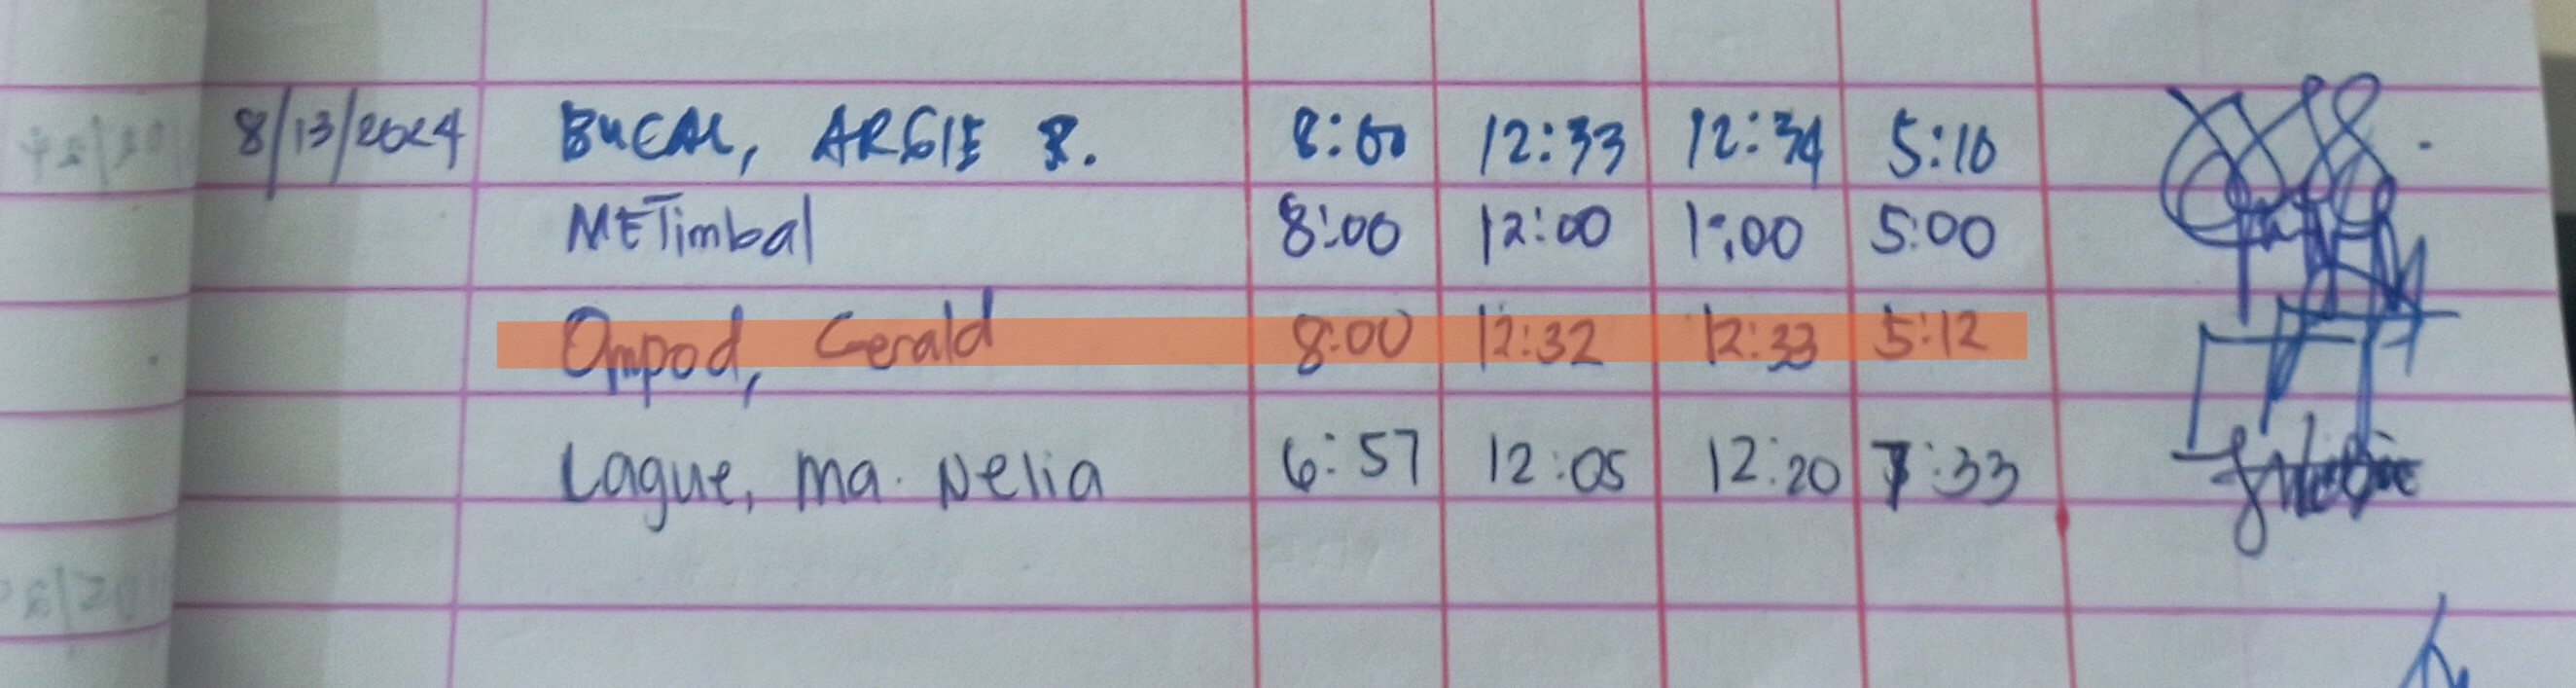 8/13/2024 BUCAL, ARGIE R. 8:00 12:33 12:34 5:10
METimbal 8:00 12:00 1:00 5:00
Ompod, Gerald 8:00 12:32 12:33 5:12
Lague, Ma. Nelia 6:57 12:05 12:20 7:33